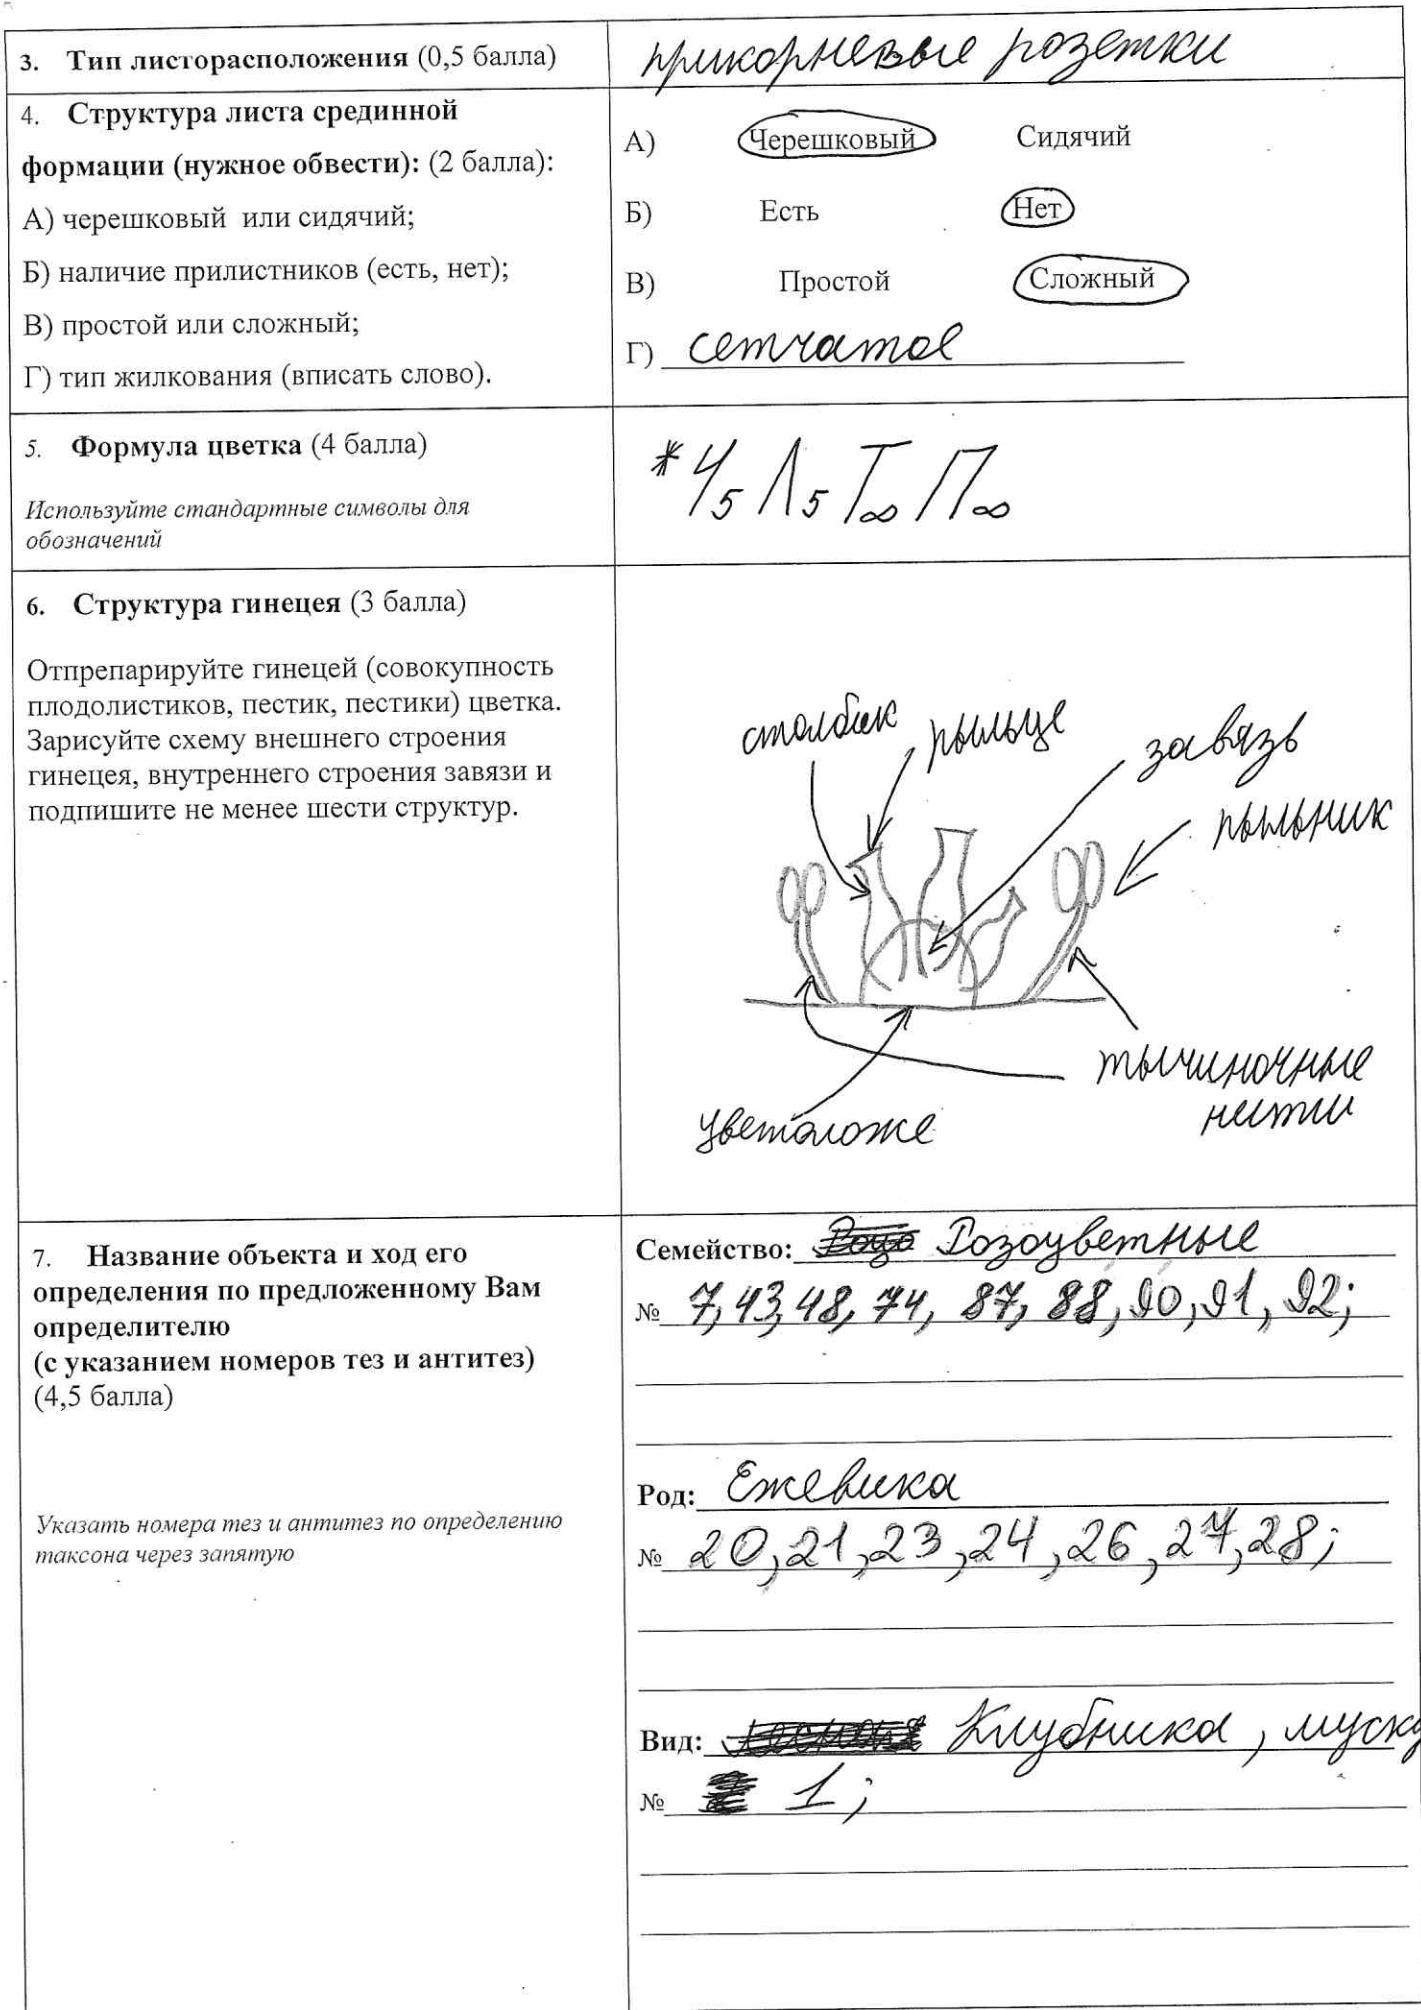 3. Тип листорасположения (0,5 балла)
прикорневые розетки
4. Структура листа срединной
формации (нужное обвести): (2 балла):
А) черешковый или сидячий;
Б) наличие прилистников (есть, нет);
В) простой или сложный;
Г) тип жилкования (вписать слово).
А) Черешковый Сидячий
Б) Есть Нет
В) Простой Сложный
Г) сетчатое
5. Формула цветка (4 балла)
Используйте стандартные символы для
обозначений
*Ч5 Л5 Т∞ П∞
6. Структура гинецея (3 балла)
Отпрепарируйте гинецей (совокупность
плодолистиков, пестик, пестики) цветка.
Зарисуйте схему внешнего строения
гинецея, внутреннего строения завязи и
подпишите не менее шести структур.
столбик
рыльце
завязь
пыльник
тычиночные
нити
цветоложе
7. Название объекта и ход его
определения по предложенному Вам
определителю
(с указанием номеров тез и антитез)
(4,5 балла)
Указать номера тез и антитез по определению
таксона через запятую
Семейство: Розоцветные
№ 7, 43, 48, 74, 87, 88, 90, 91, 92;
Род: Ежевика
№ 20, 21, 23, 24, 26, 27, 28;
Вид: Клубника, муску
№ 1;